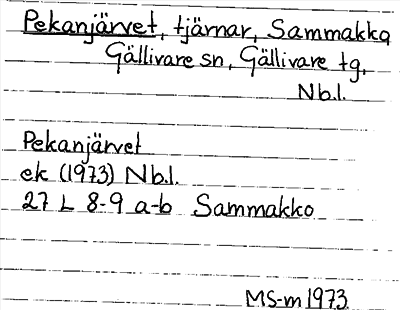 Pekanjärvet, tjärnar, Sammakko
Gällivare sn, Gällivare tg,
Nb.l.
Pekanjärvet
ek (1973) Nb.l.
27 L 8-9 a-b Sammakko
MS-m 1973